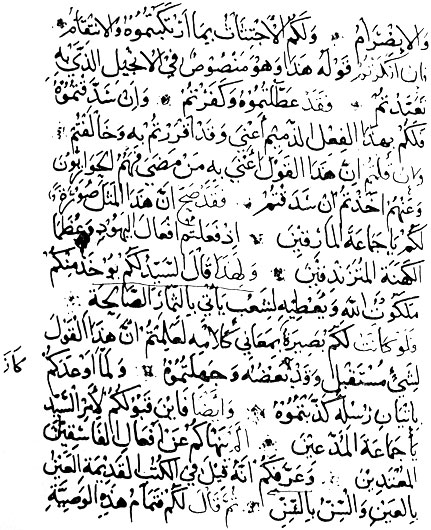 والاضرام ولكم الاجتناث بما انكتموه والانتقام
فان انكرتم قوله هذا وهو منصوص في الانجيل الذي به
تعبدتم فقد عطلتموه وكفرتم وان سددتموه
فلكم بهذا الفعل الذميم اعني وقد اقررتم به وخالفتم
وان قلتم ان هذا القول اعني به من مضى منهم الحواريون
وعنهم اخذتم ان سددتم فقد صح ان هذا المثل صورة
لكم يا جماعة المارقين اذ فعلتم افعال اليهود وعظما
الكهنة المتزندقين ولهذا قال السيد لكم يوخذ منكم
ملكوت الله ويعطيه لشعب ياتي بالثمار الصالحة
ولو كانت لكم بصيرة بمعاني كلامه لعلمتم ان هذا القول
لشيء مستقبل وقد بعضه وجهلتموه ولما اوعدكم
باتيان رسله كذبتموه وايضا فاين قبولكم لامر السيد
يا جماعة المدعين الم ينهاكم عن افعال الفاسقين
المعتدين وعرفكم انه قيل في الكتب القديمة العين
بالعين والسن بالسن ثم قال لكم فتمام هذه الوصية
كان